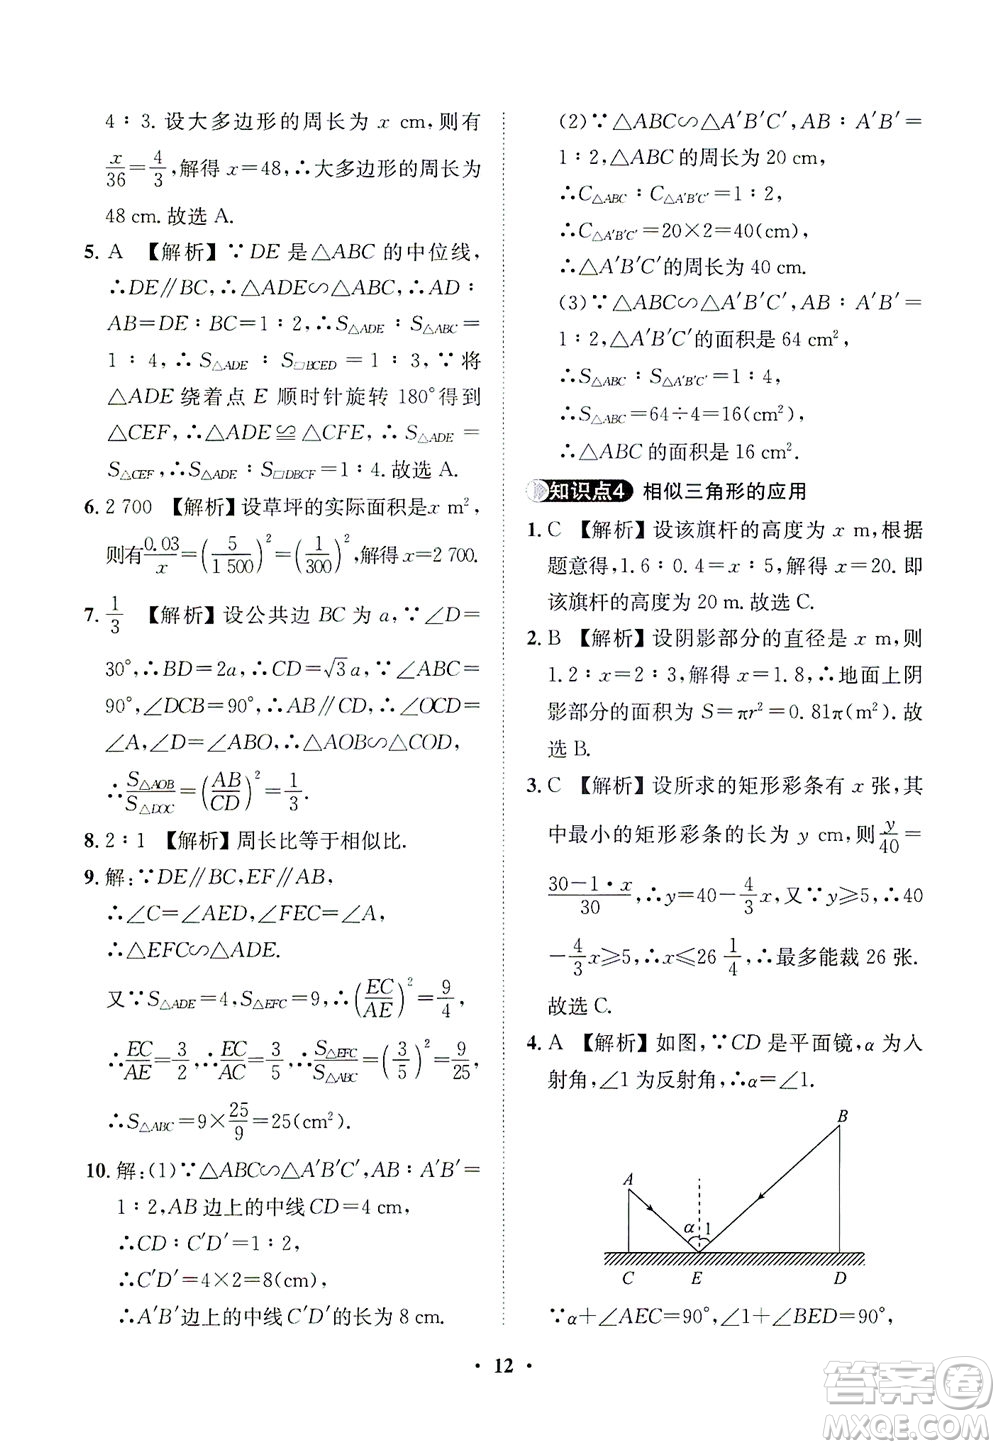 4∶3.设大多边形的周长为 x cm,则有
x/36=4/3,解得 x=48,∴大多边形的周长为
48 cm.故选 A.
5. A 【解析】∵DE 是△ABC 的中位线,
∴DE∥BC,∴△ADE∽△ABC,∴AD∶
AB=DE∶BC=1∶2,∴S△ADE∶S△ABC=
1∶4,∴S△ADE∶S□BCED=1∶3,∵将
△ADE 绕着点 E 顺时针旋转 180°得到
△CEF,∴△ADE≌△CFE,∴S△ADE=
S△CEF,∴S△ADE∶S□DBCF=1∶4.故选 A.
6. 2 700 【解析】设草坪的实际面积是x m²,
则有0.03/x=(5/1 500)²=(1/300)²,解得 x=2 700.
7. 1/3 【解析】设公共边 BC 为 a,∵∠D=
30°,∴BD=2a,∴CD=√3a,∵∠ABC=
90°,∠DCB=90°,∴AB∥CD,∴∠OCD=
∠A,∠D=∠ABO,∴△AOB∽△COD,
∴S△AOB/S△DOC=(AB/CD)²=1/3.
8. 2∶1 【解析】周长比等于相似比.
9. 解:∵DE∥BC,EF∥AB,
∴∠C=∠AED,∠FEC=∠A,
∴△EFC∽△ADE.
又∵S△ADE=4,S△EFC=9,∴(EC/AE)²=9/4
∴EC/AE=3/2,∴EC/AC=3/5∴S△EFC/S△ABC=(3/5)²=9/25
∴S△ABC=9×25/9=25(cm²).
10. 解:(1)∵△ABC∽△A′B′C′,AB∶A′B′=
1∶2,AB 边上的中线 CD=4 cm,
∴CD∶C′D′=1∶2,
∴C′D′=4×2=8(cm),
∴A′B′边上的中线 C′D′的长为 8 cm.
(2)∵△ABC∽△A′B′C′,AB∶A′B′=
1∶2,△ABC 的周长为 20 cm,
∴C△ABC∶C△A′B′C′=1∶2,
∴C△A′B′C′=20×2=40(cm),
∴△A′B′C′的周长为 40 cm.
(3)∵△ABC∽△A′B′C′,AB∶A′B′=
1∶2,△A′B′C′的面积是 64 cm²,
∴S△ABC∶S△A′B′C′=1∶4,
∴S△ABC=64÷4=16(cm²),
∴△ABC 的面积是 16 cm².
知识点4 相似三角形的应用
1. C 【解析】设该旗杆的高度为 x m,根据
题意得,1.6∶0.4=x∶5,解得 x=20.即
该旗杆的高度为 20 m.故选C.
2. B 【解析】设阴影部分的直径是 x m,则
1.2∶x=2∶3,解得 x=1.8,∴地面上阴
影部分的面积为 S=πr²=0.81π(m²).故
选 B.
3. C 【解析】设所求的矩形彩条有 x 张,其
中最小的矩形彩条的长为 y cm,则y/40=
30-1·x/30,∴y=40-4/3x,又∵y≥5,∴40
-4/3x≥5,∴x≤26 1/4,∴最多能裁 26 张.
故选 C.
4. A 【解析】如图,∵CD 是平面镜,α 为入
射角,∠1 为反射角,∴α=∠1.
B
A
α 1
C E D
∵α+∠AEC=90°,∠1+∠BED=90°,
• 12 •
答案圈
MXQE.COM